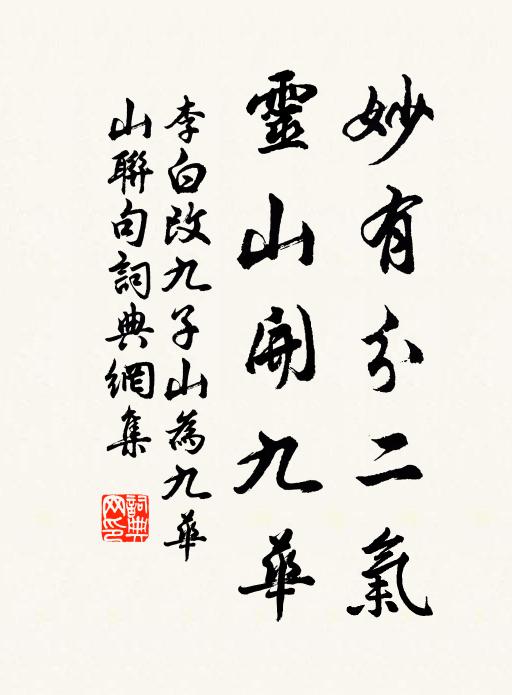 妙有分二氣
靈山開九華
李白改九子山為九華
山聯句詞典網集
詞典
网印